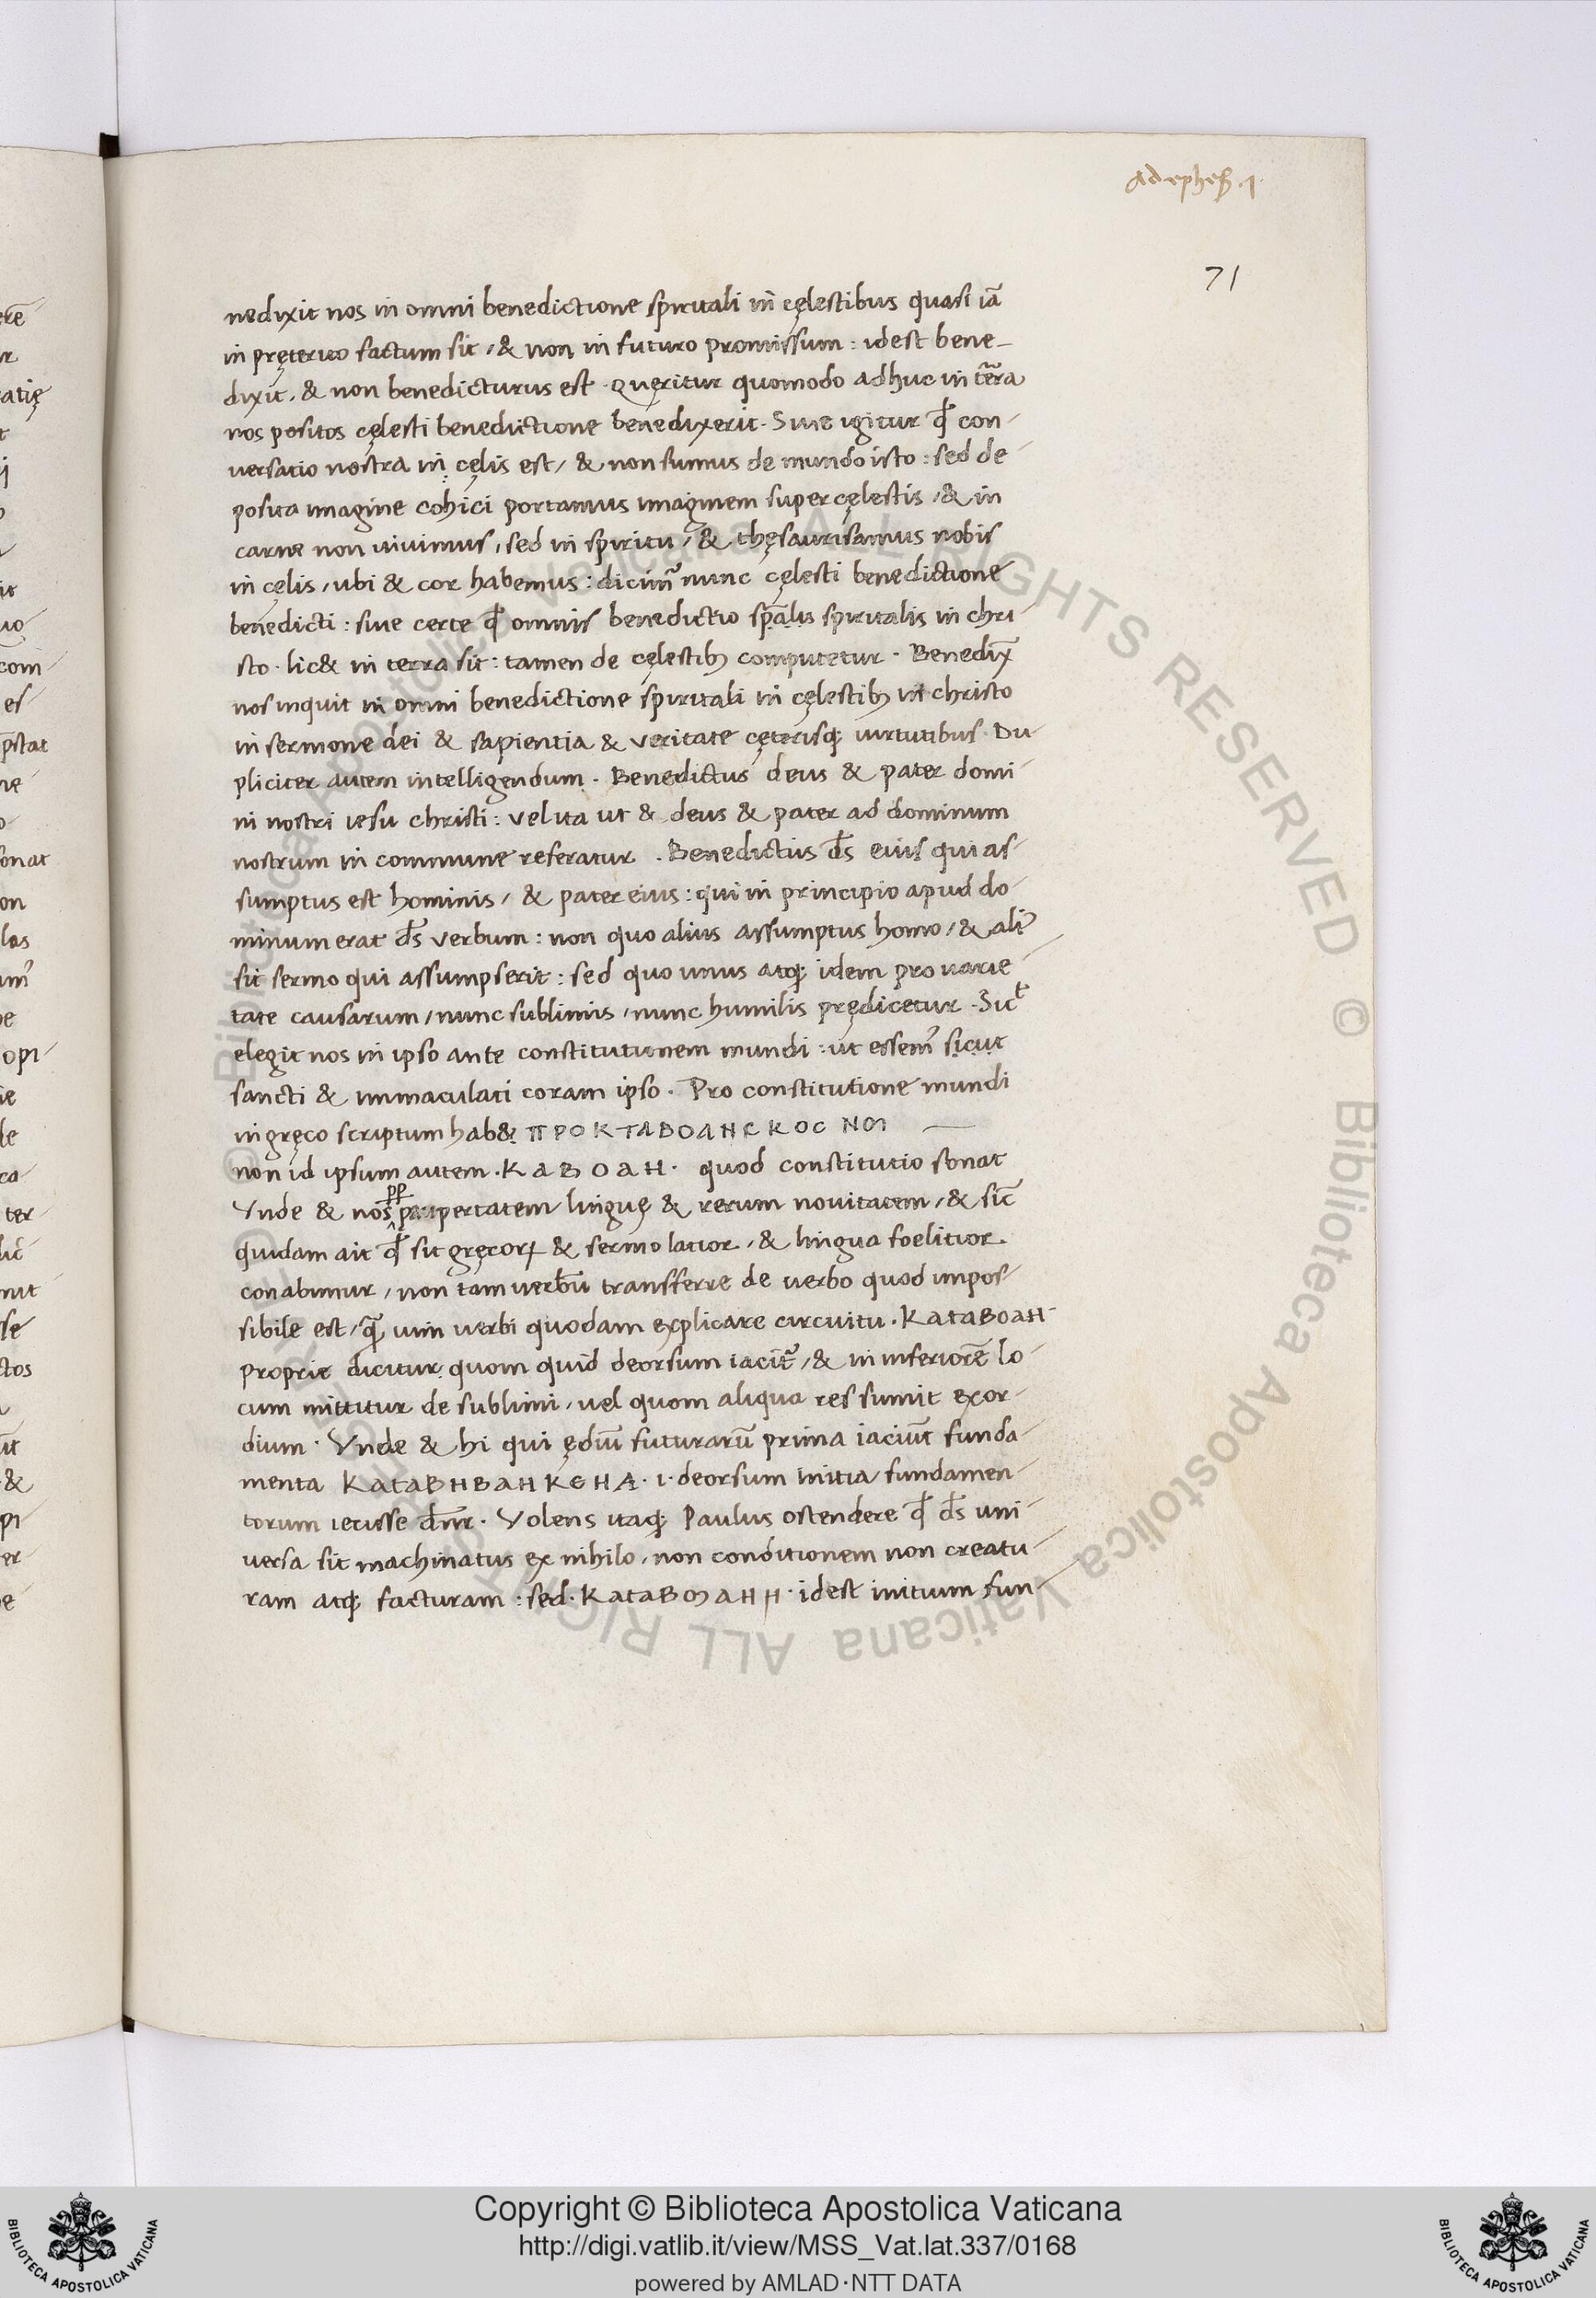 Ad ephes̄ .1.
71
nedixit nos in omni benedictione spiritali in cęlestibus quasi iā
in pręterito factum sit / & non in futuro promissum : idest bene-
dixit . & non benedicturus est . Quęritur quomodo adhuc in tēra
nos positos cęlesti benedictione benedixerit . Siue igitur qđ con-
versatio nostra in cęlis est / & non sumus de mundo isto : sed de
posita imagine cohici portamus imaginem supercęlestis / & in
carne non uiuimus / sed in spiritu / & thęsaurisamus nobis
in cęlis / ubi & cor habemus : dicim᷑ nunc cęlesti benedictione
benedicti : siue certe qđ omnis benedictio sp̄alis spiritalis in chri
sto . lic& in terra sit : tamen de cęlestibꝫ computetur . Benedix̄
nos inquit in omni benedictione spiritali in cęlestibꝫ in christo
in sermone dei & sapientia & veritate cęterisqꝫ uirtutibus . Du-
pliciter autem intelligendum . Benedictus deus & pater domi-
ni nostri iesu christi : vel ita ut & deus & pater ad dominum
nostrum in commune referatur . Benedictus d̄s eius qui as-
sumptus est hominis / & pater eius : qui in principio apud do-
minum erat d̄s verbum : non quo alius assumptus homo / & ali᷒
sit sermo qui assumpserit : sed quo unus atqꝫ idem pro uarie-
tate causarum / nunc sublimis / nunc humilis prędicetur . Sic͛
elegit nos in ipso ante constitutionem mundi : ut essem᷒ sicut
sancti & immaculati coram ipso . Pro constitutione mundi
in gręco scriptum hab& ΠΡΟΚΤΑΒΟΑΗϹΚΟϹ ΝΟΙ
non id ipsum autem . ΚΑΒΟΑΗ . quod constitutio sonat
Vnde & nos pp paupertatem linguę & rerum nouitatem / & sic̄
quidam ait qđ sit gręcorꝝ & sermo latior / & lingua foelitior .
conabimur / non tam verbū transferre de verbo quod impos-
sibile est / quā uim uerbi quodam explicare circuitu . ΚΑΤΑΒΟΑΗ
Proprie dicitur quom quid deorsum iacit᷑ / & in inferiorē lo-
cum mittitur de sublimi / vel quom aliqua res sumit exor-
dium . Vnde & hi qui ędiū futurarū prima iaciūt funda-
menta ΚΑΤΑΒΗΒΑΗΚЄΗΑ . i . deorsum initia fundamen-
torum iecisse dn̄r . Volens itaqꝫ Paulus ostendere qđ d̄s uni-
versa sit machinatus ex nihilo / non conditionem non creatu-
ram atqꝫ facturam : sed . ΚΑΤΑΒΟΙΑΗΗ . idest initium fun-
Copyright © Biblioteca Apostolica Vaticana
http://digi.vatlib.it/view/MSS_Vat.lat.337/0168
powered by AMLAD·NTT DATA
BIBLIOTECA APOSTOLICA VATICANA
BIBLIOTECA APOSTOLICA VATICANA
© Biblioteca Apostolica Vaticana ALL RIGHTS RESERVED